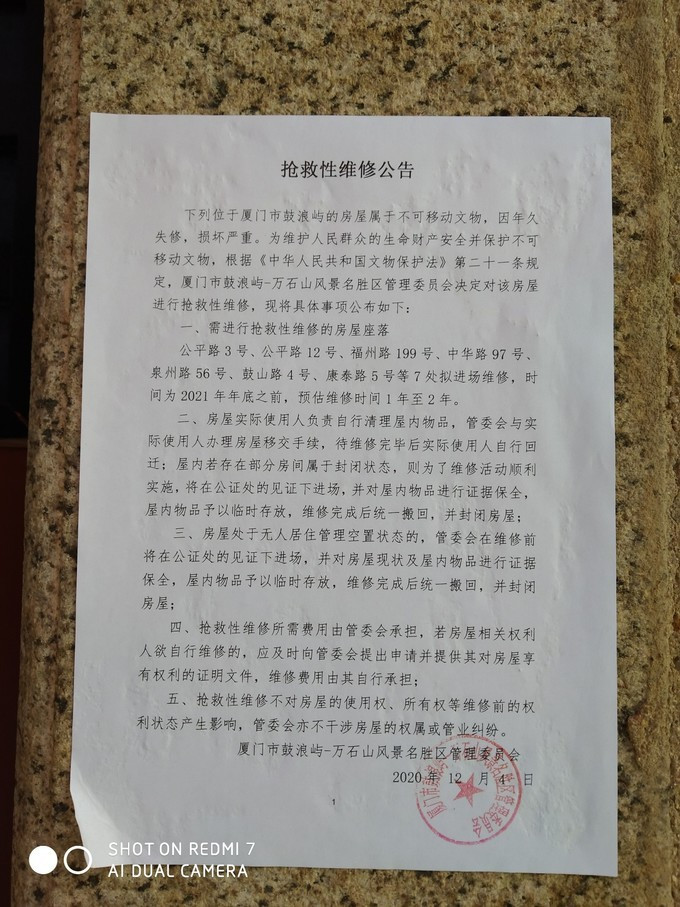 抢救性维修公告
下列位于厦门市鼓浪屿的房屋属于不可移动文物，因年久
失修，损坏严重。为维护人民群众的生命财产安全并保护不可
移动文物，根据《中华人民共和国文物保护法》第二十一条规
定，厦门市鼓浪屿-万石山风景名胜区管理委员会决定对该房屋
进行抢救性维修，现将具体事项公布如下：
一、需进行抢救性维修的房屋座落
公平路 3 号、公平路 12 号、福州路 199 号、中华路 97 号、
泉州路 56 号、鼓山路 4 号、康泰路 5 号等 7 处拟进场维修，时
间为 2021 年年底之前，预估维修时间 1 年至 2 年。
二、房屋实际使用人负责自行清理屋内物品，管委会与实
际使用人办理房屋移交手续，待维修完毕后实际使用人自行回
迁；屋内若存在部分房间属于封闭状态，则为了维修活动顺利
实施，将在公证处的见证下进场，并对屋内物品进行证据保全，
屋内物品予以临时存放，维修完成后统一搬回，并封闭房屋；
三、房屋处于无人居住管理空置状态的，管委会在维修前
将在公证处的见证下进场，并对房屋现状及屋内物品进行证据
保全，屋内物品予以临时存放，维修完成后统一搬回，并封闭
房屋；
四、抢救性维修所需费用由管委会承担，若房屋相关权利
人欲自行维修的，应及时向管委会提出申请并提供其对房屋享
有权利的证明文件，维修费用由其自行承担；
五、抢救性维修不对房屋的使用权、所有权等维修前的权
利状态产生影响，管委会亦不干涉房屋的权属或管业纠纷。
厦门市鼓浪屿-万石山风景名胜区管理委员会
2020 年 12 月 4 日
厦门市鼓浪屿-万石山风景名胜区管理委员会
1
SHOT ON REDMI 7
AI DUAL CAMERA